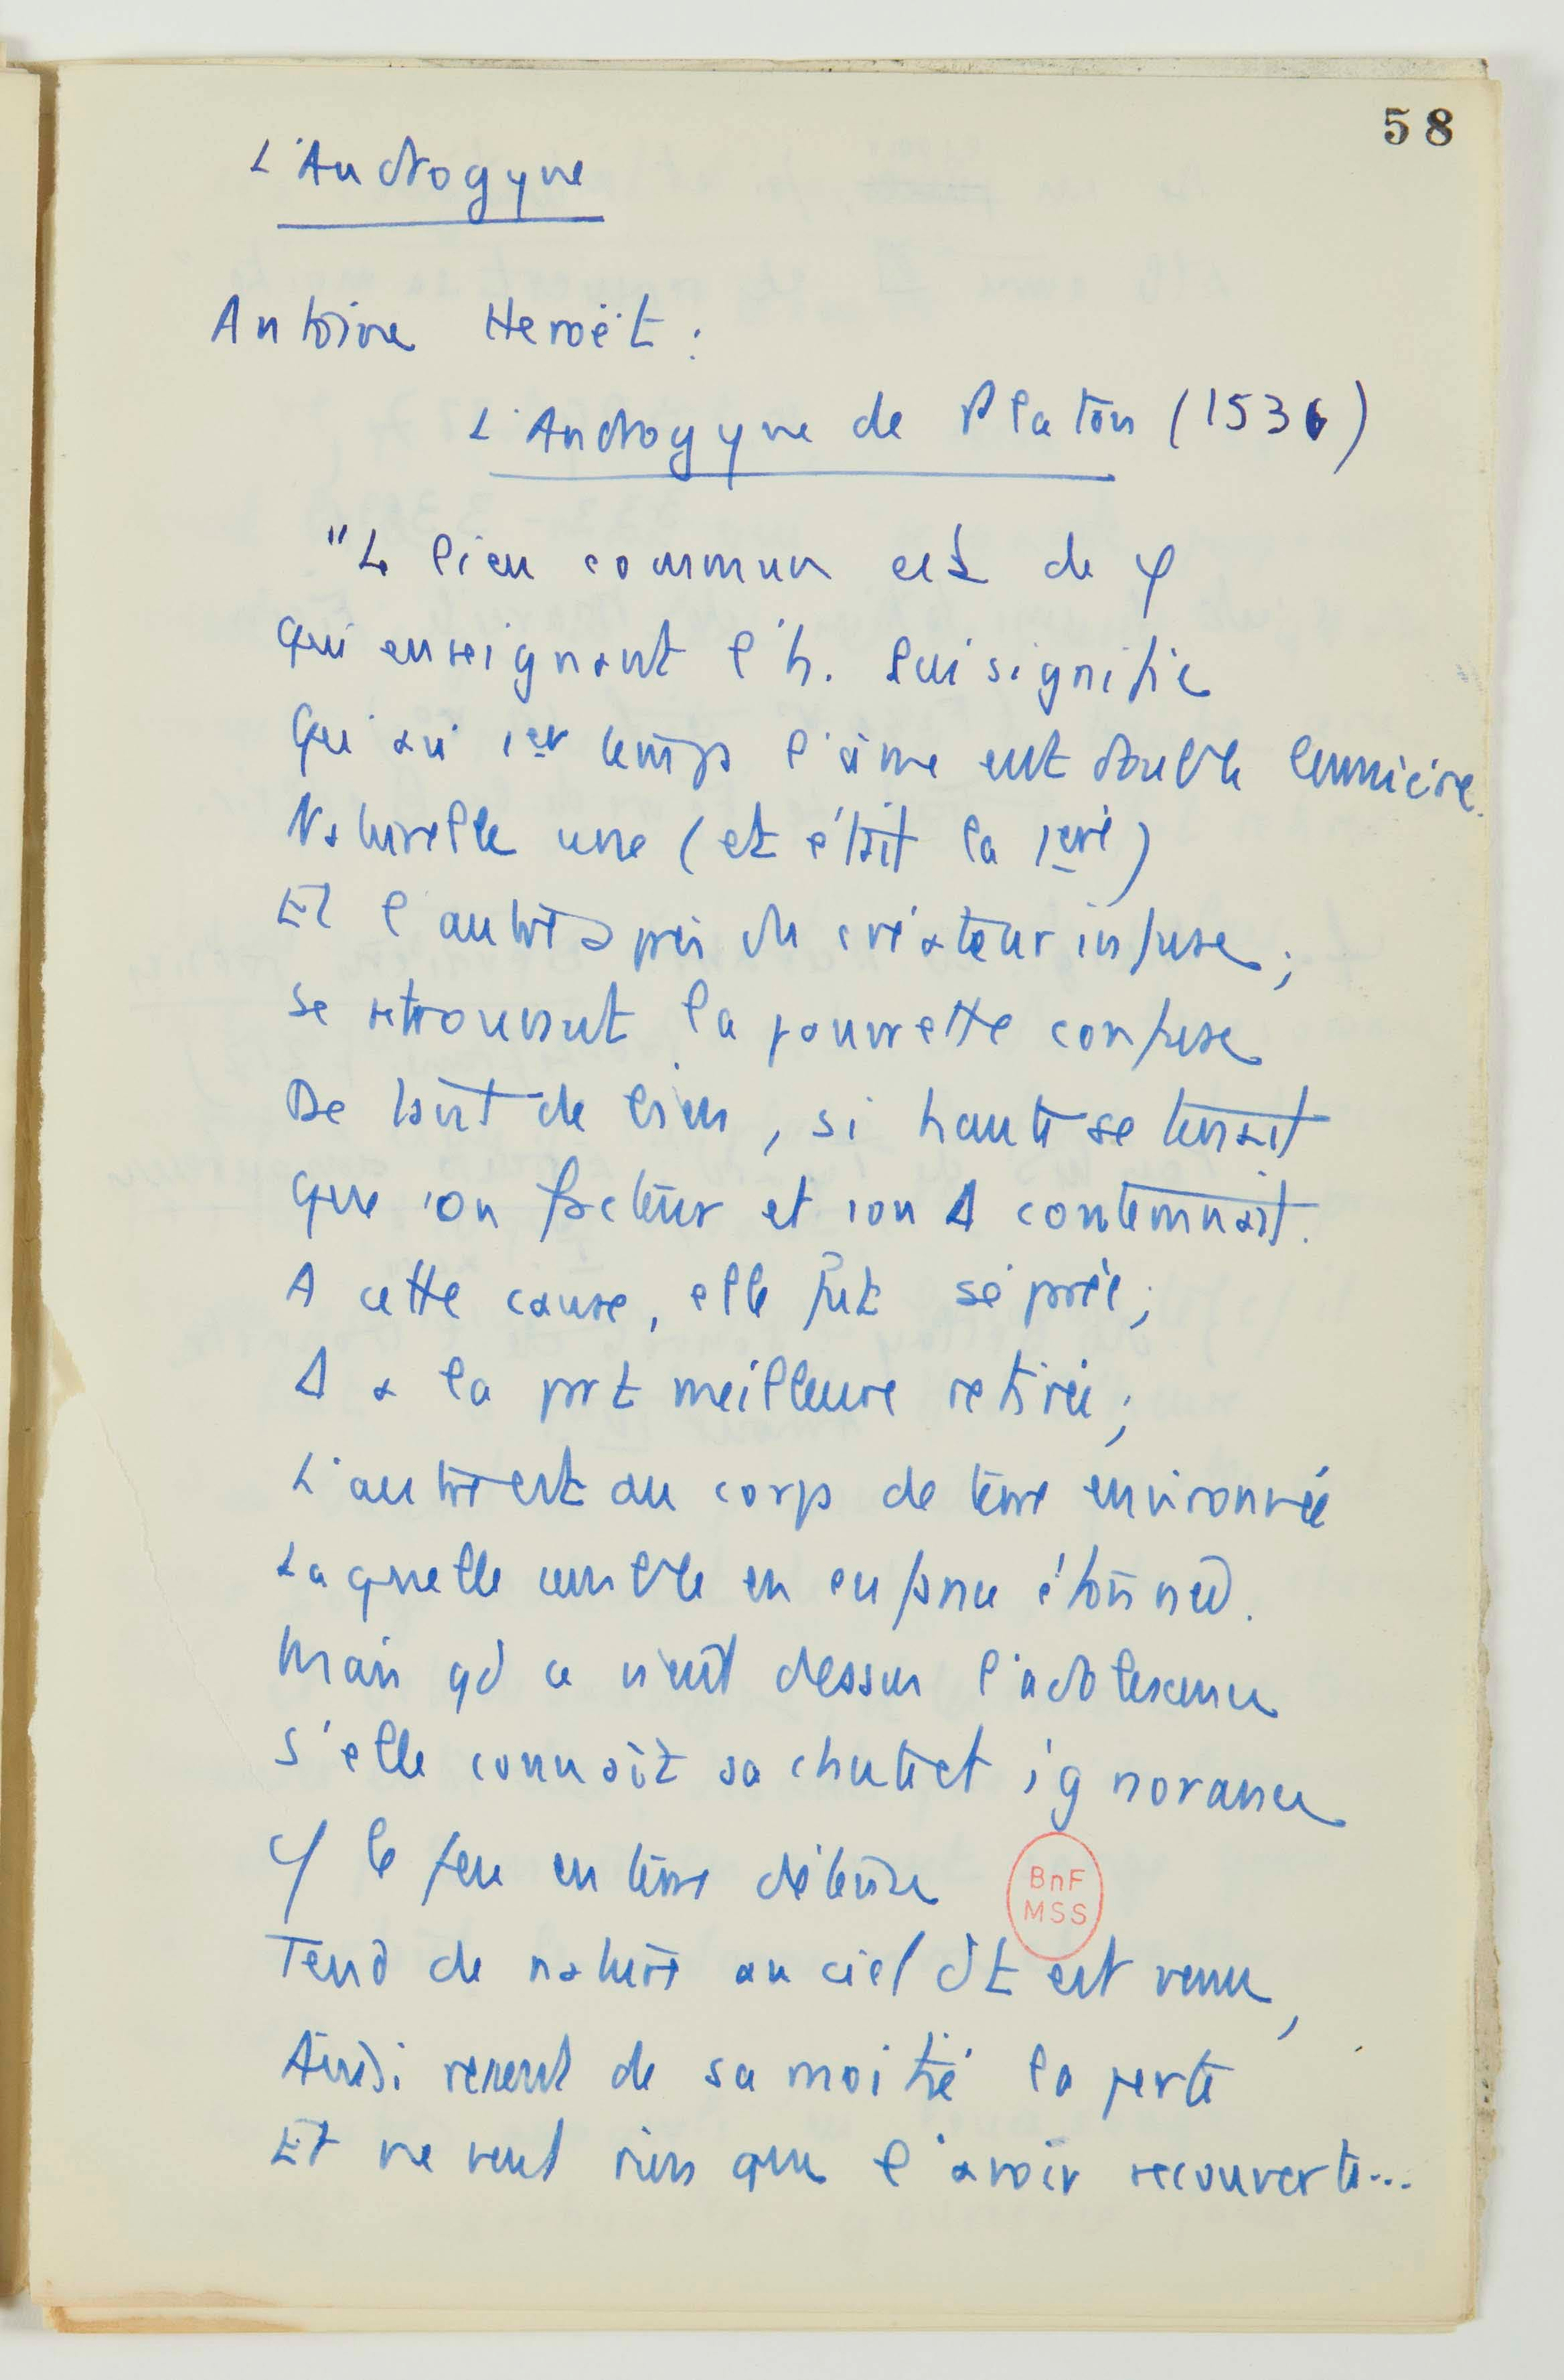 58
L'Androgyne
Antoine Heroët :
L'Androgyne de Platon (1536)
"Le lieu commun est de φ
Qui enseignant l'h. lui signifie
Qu'au 1er temps l'âme eut double lumière.
Naturelle une (et était la 1ere)
Et l'autre après du créateur infuse ;
Se retrouvant la pauvrette confuse
De tant de biens, si haute se tenait
Que son facteur et son Δ contemnait.
A cette cause, elle fut séparée ;
Δ a la part meilleure retirée ;
L'autre est au corps de terre environnée
Laquelle semble en enfance étonnée.
Mais qd ce vient dessus l'adolescence
S'elle connaît sa chute et ignorance
φ le feu en terre détenu
Tend de nature au ciel dt est venu,
Ainsi revient de sa moitié la perte
Et ne veut rien que l'avoir recouverte...
BnF
MSS